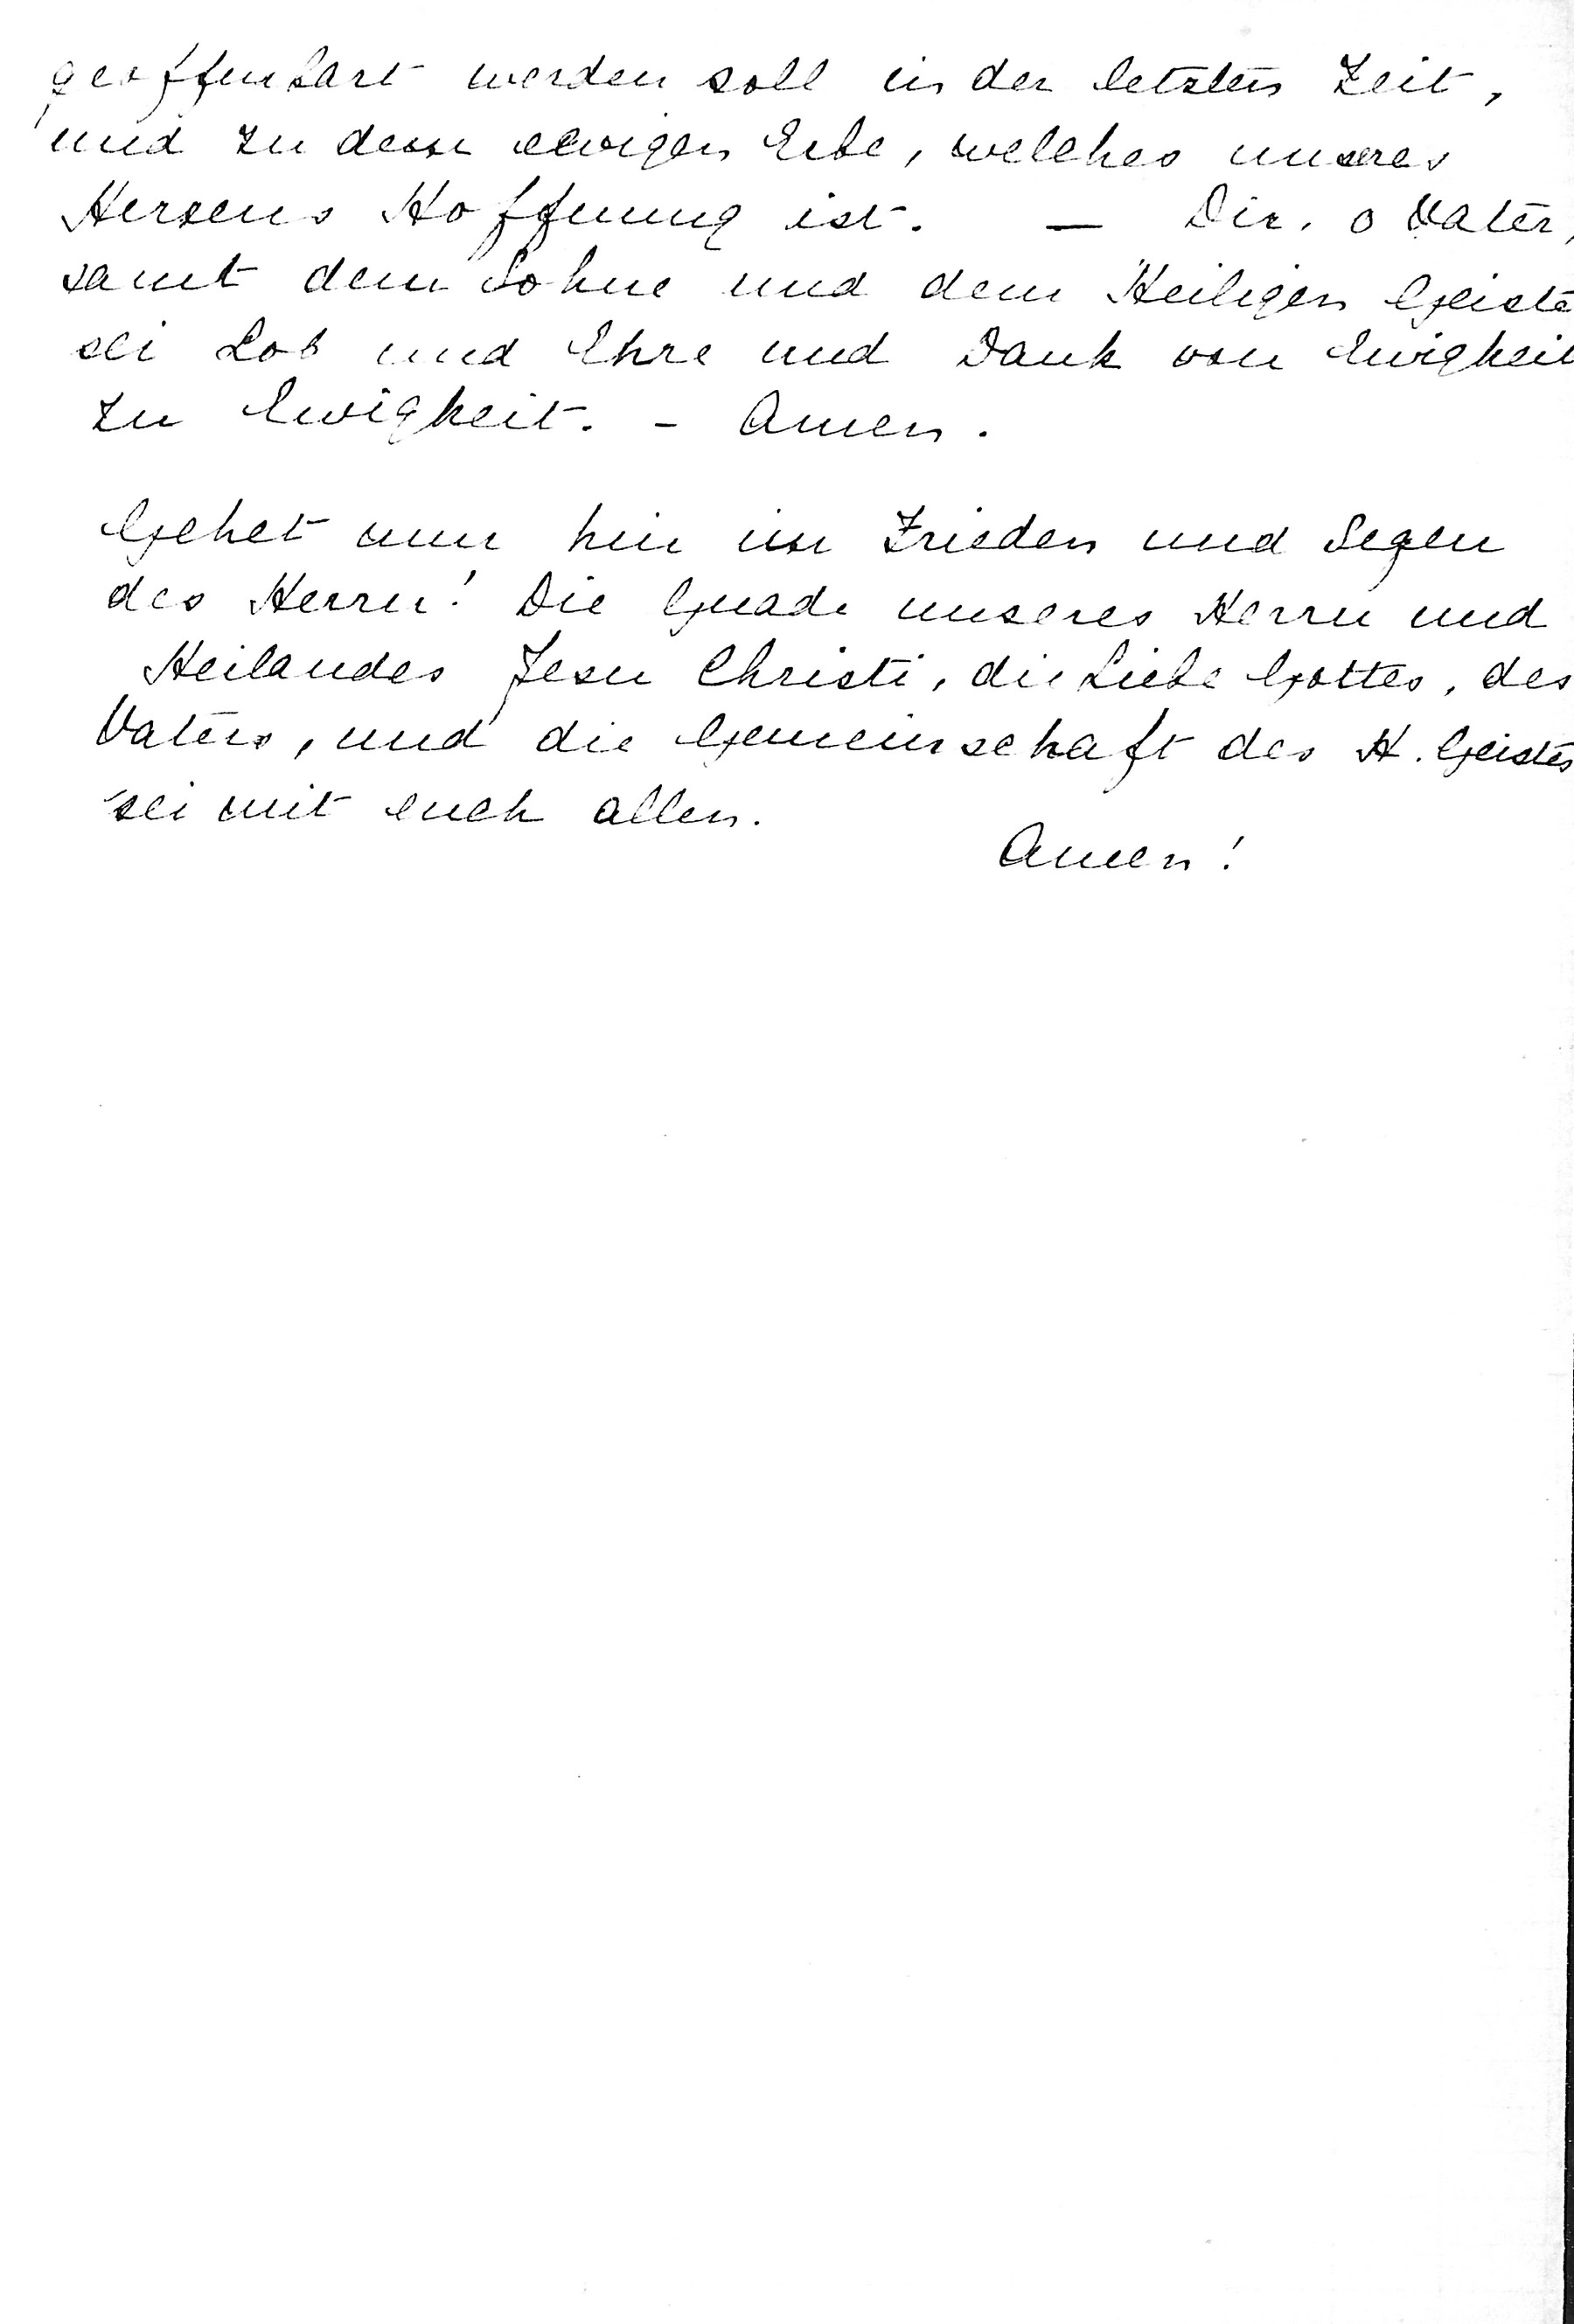 geoffenbart werden soll in der letzten Zeit,
und zu dem ewigen Erbe, welches unseres
Herzens Hoffnung ist. — Dir, o Vater,
samt dem Sohne und dem Heiligen Geiste
sei Lob und Ehre und Dank von Ewigkeit
zu Ewigkeit. - Amen.
Gehet nun hin im Frieden und Segen
des Herrn! Die Gnade unseres Herrn und
Heilandes Jesu Christi, die Liebe Gottes, des
Vaters, und die Gemeinschaft des H. Geistes
sei mit euch allen.
Amen!